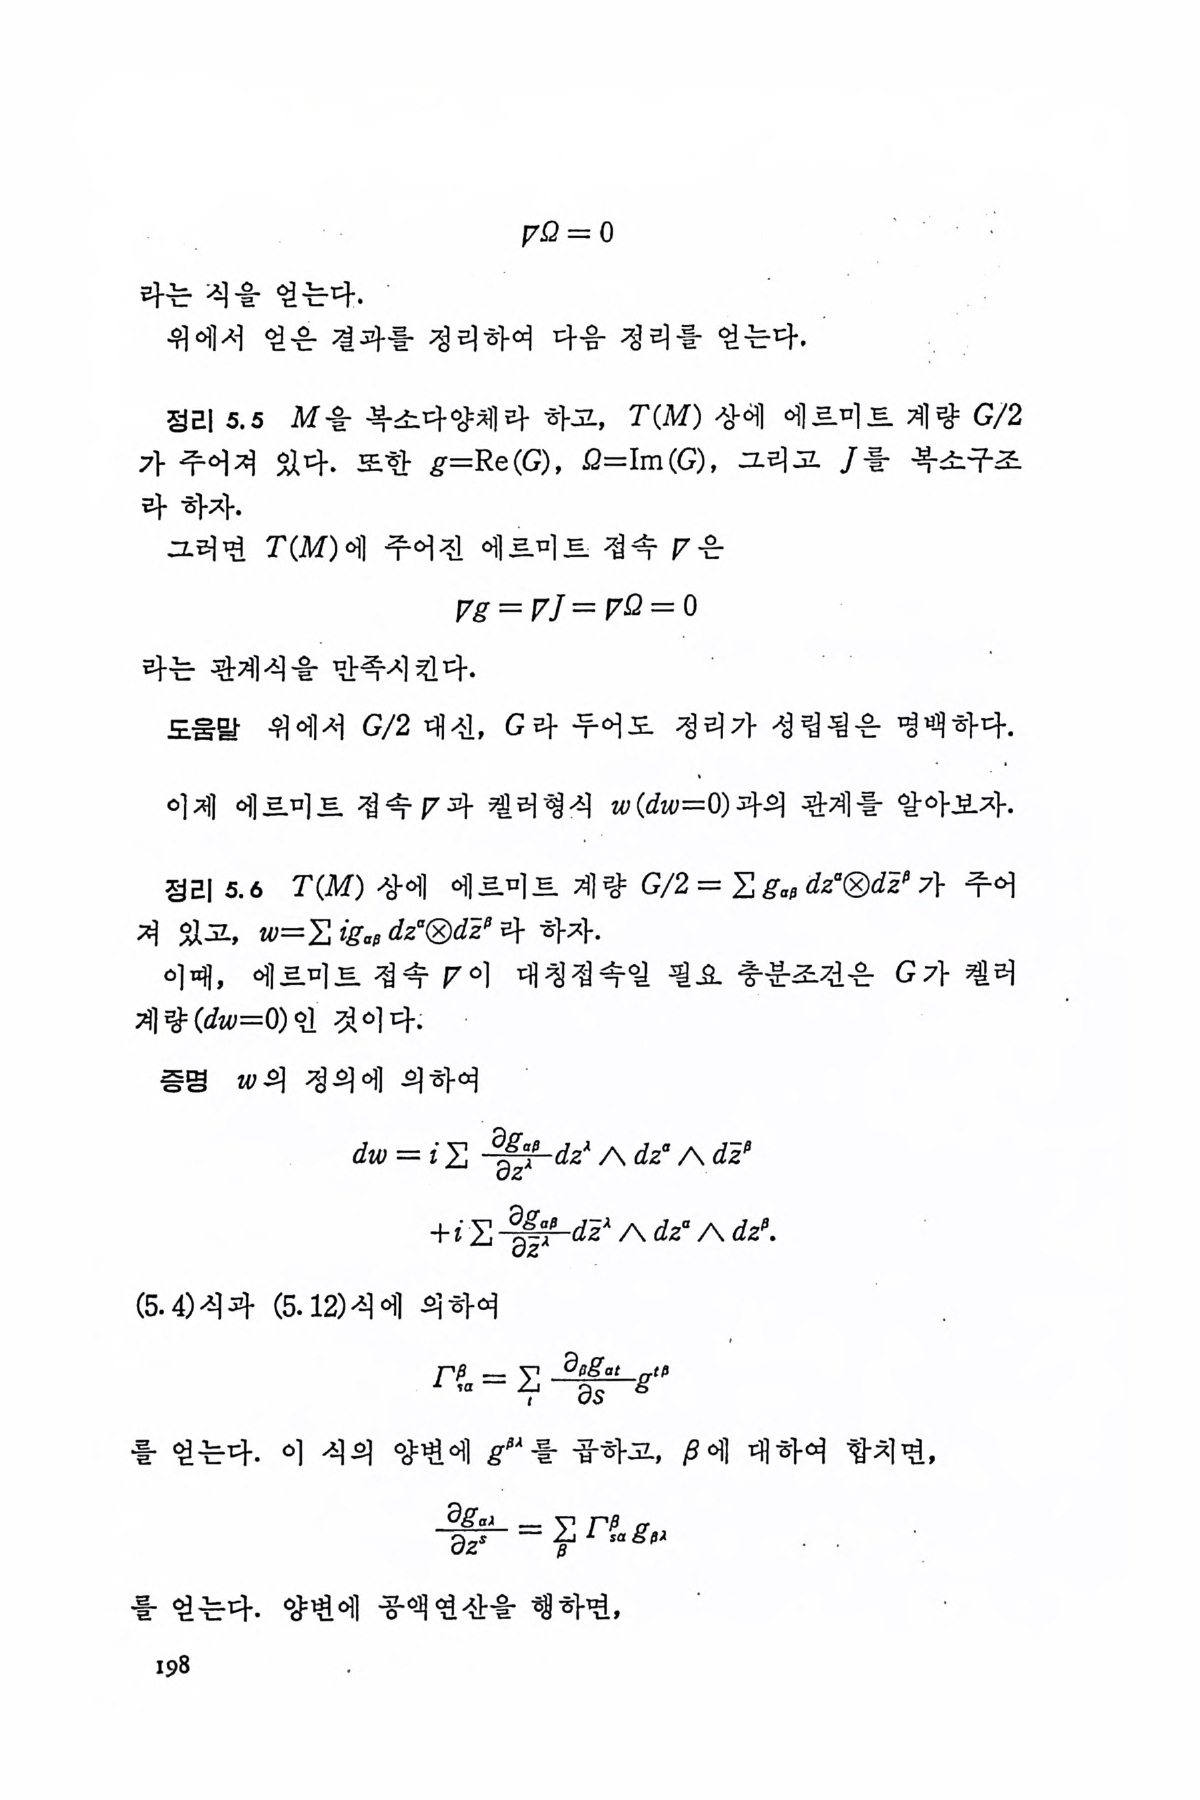 ∇Ω = 0
라는 식을 얻는다.
위에서 얻은 결과를 정리하여 다음 정리를 얻는다.
정리 5.5 M을 복소다양체라 하고, T(M) 상에 에르미트 계량 G/2
가 주어져 있다. 또한 g=Re(G), Ω=Im(G), 그리고 J를 복소구조
라 하자.
그러면 T(M)에 주어진 에르미트 접속 ∇은
∇g = ∇J = ∇Ω = 0
라는 관계식을 만족시킨다.
도움말 위에서 G/2 대신, G라 두어도 정리가 성립됨은 명백하다.
이제 에르미트 접속 ∇과 켈러형식 w(dw=0)과의 관계를 알아보자.
정리 5.6 T(M) 상에 에르미트 계량 G/2 = ∑ g_{αβ} dz^α⊗dz̄^β가 주어
져 있고, w=∑ ig_{αβ} dz^α⊗dz̄^β라 하자.
이때, 에르미트 접속 ∇이 대칭접속일 필요 충분조건은 G가 켈러
계량(dw=0)인 것이다.
증명 w의 정의에 의하여
dw = i ∑ ∂g_{αβ}/∂z^λ dz^λ ∧ dz^α ∧ dz̄^β
+i ∑ ∂g_{αβ}/∂z̄^λ dz̄^λ ∧ dz^α ∧ dz^β.
(5.4)식과 (5.12)식에 의하여
Γ^β_{sα} = ∑_t ∂_βg_{αt}/∂s g^{tβ}
를 얻는다. 이 식의 양변에 g^{βλ}를 곱하고, β에 대하여 합치면,
∂g_{αλ}/∂z^s = ∑_β Γ^β_{sα} g_{βλ}
를 얻는다. 양변에 공액연산을 행하면,
198